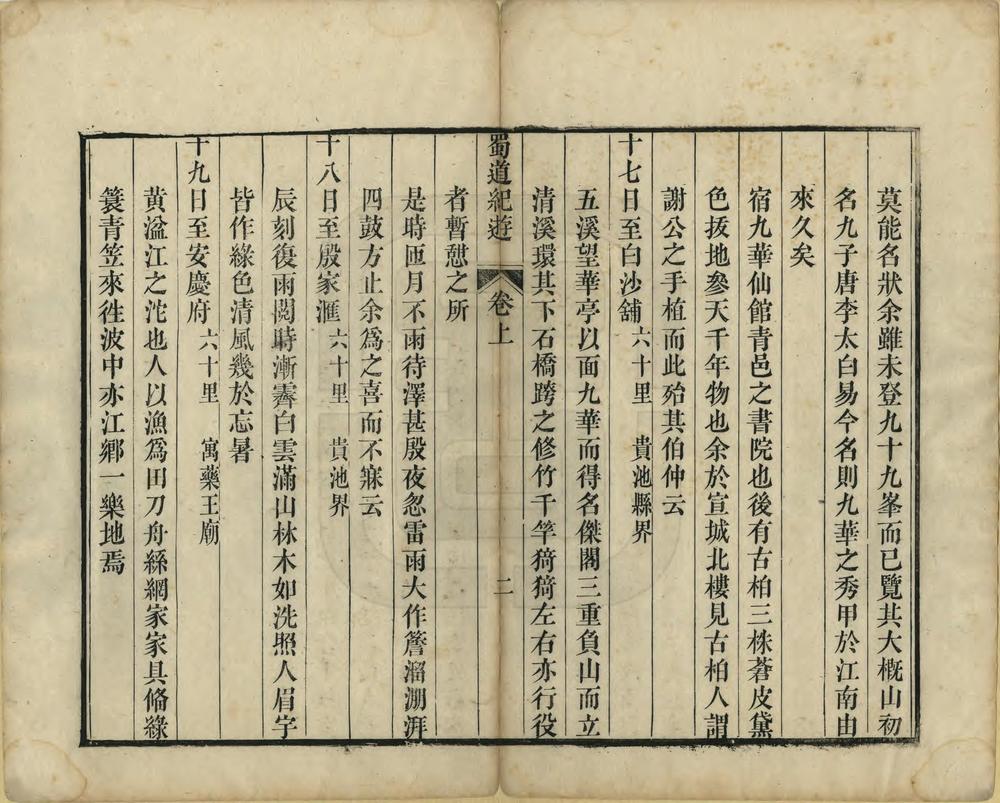 莫能名狀余雖未登九十九峯而已覽其大槪山初
名九子唐李太白易今名則九華之秀甲於江南由
來久矣
宿九華仙館青邑之書院也後有古柏三株蒼皮黛
色拔地參天千年物也余於宣城北樓見古柏人謂
謝公之手植而此殆其伯仲云
十七日至白沙舖 六十里 貴池縣界
五溪望華亭以面九華而得名傑閣三重負山而立
清溪環其下石橋跨之修竹千竿猗猗左右亦行役
者暫憇之所
蜀道紀遊 卷上 二
是時匝月不雨待澤甚殷夜忽雷雨大作簷溜淜湃
四鼓方止余爲之喜而不寐云
十八日至殷家滙 六十里 貴池界
辰刻復雨閱時漸霽白雲滿山林木如洗照人眉宇
皆作綠色清風幾於忘暑
十九日至安慶府 六十里 寓藥王廟
黃湓江之沱也人以漁爲田刀舟絲網家家具脩綠
簑青笠來徃波中亦江鄉一樂地焉